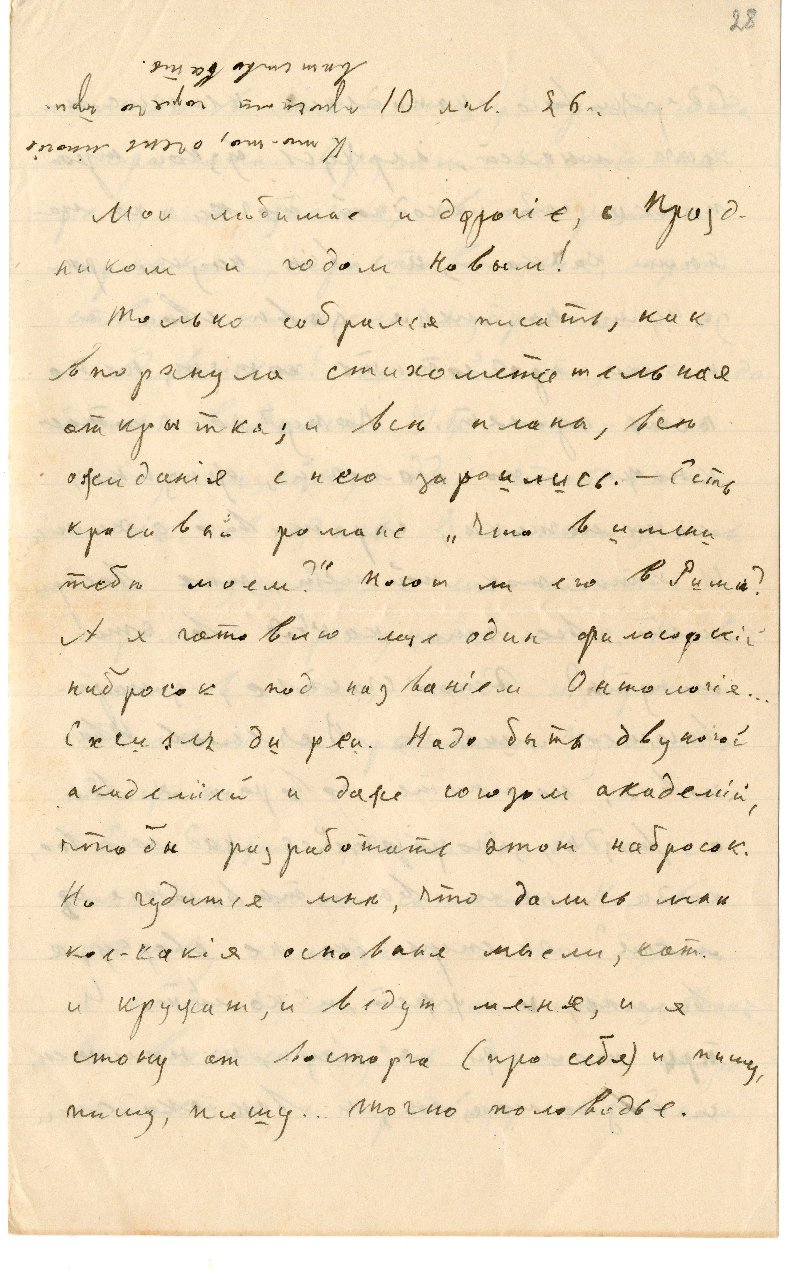 28
10 янв. 26.
Кто-то, очень многіе
просятъ горячо при-
вѣтствовать.
Мои любимые и дорогіе, с Празд-
ником и годом Новым!
Только собрался писать, как
впорхнула стихометательная
открытка; и всѣ планы, всѣ
ожиданія с нею зароились. — Есть
красивый романс „Что в имени
тебѣ моем?" Поют ли его в Римѣ?
А я готовлю еще один философскій
набросок под названіем Онтологія...
Надо быть двуногой
академіей и даже союзом академій,
чтобы разработать этот набросок.
Но чудится мнѣ, что дались мнѣ
кое-какія основныя мысли, кот.
и кружат, и ведут меня, и я
стону от восторга (про себя) и пишу,
пишу, пишу.. Точно половодье.